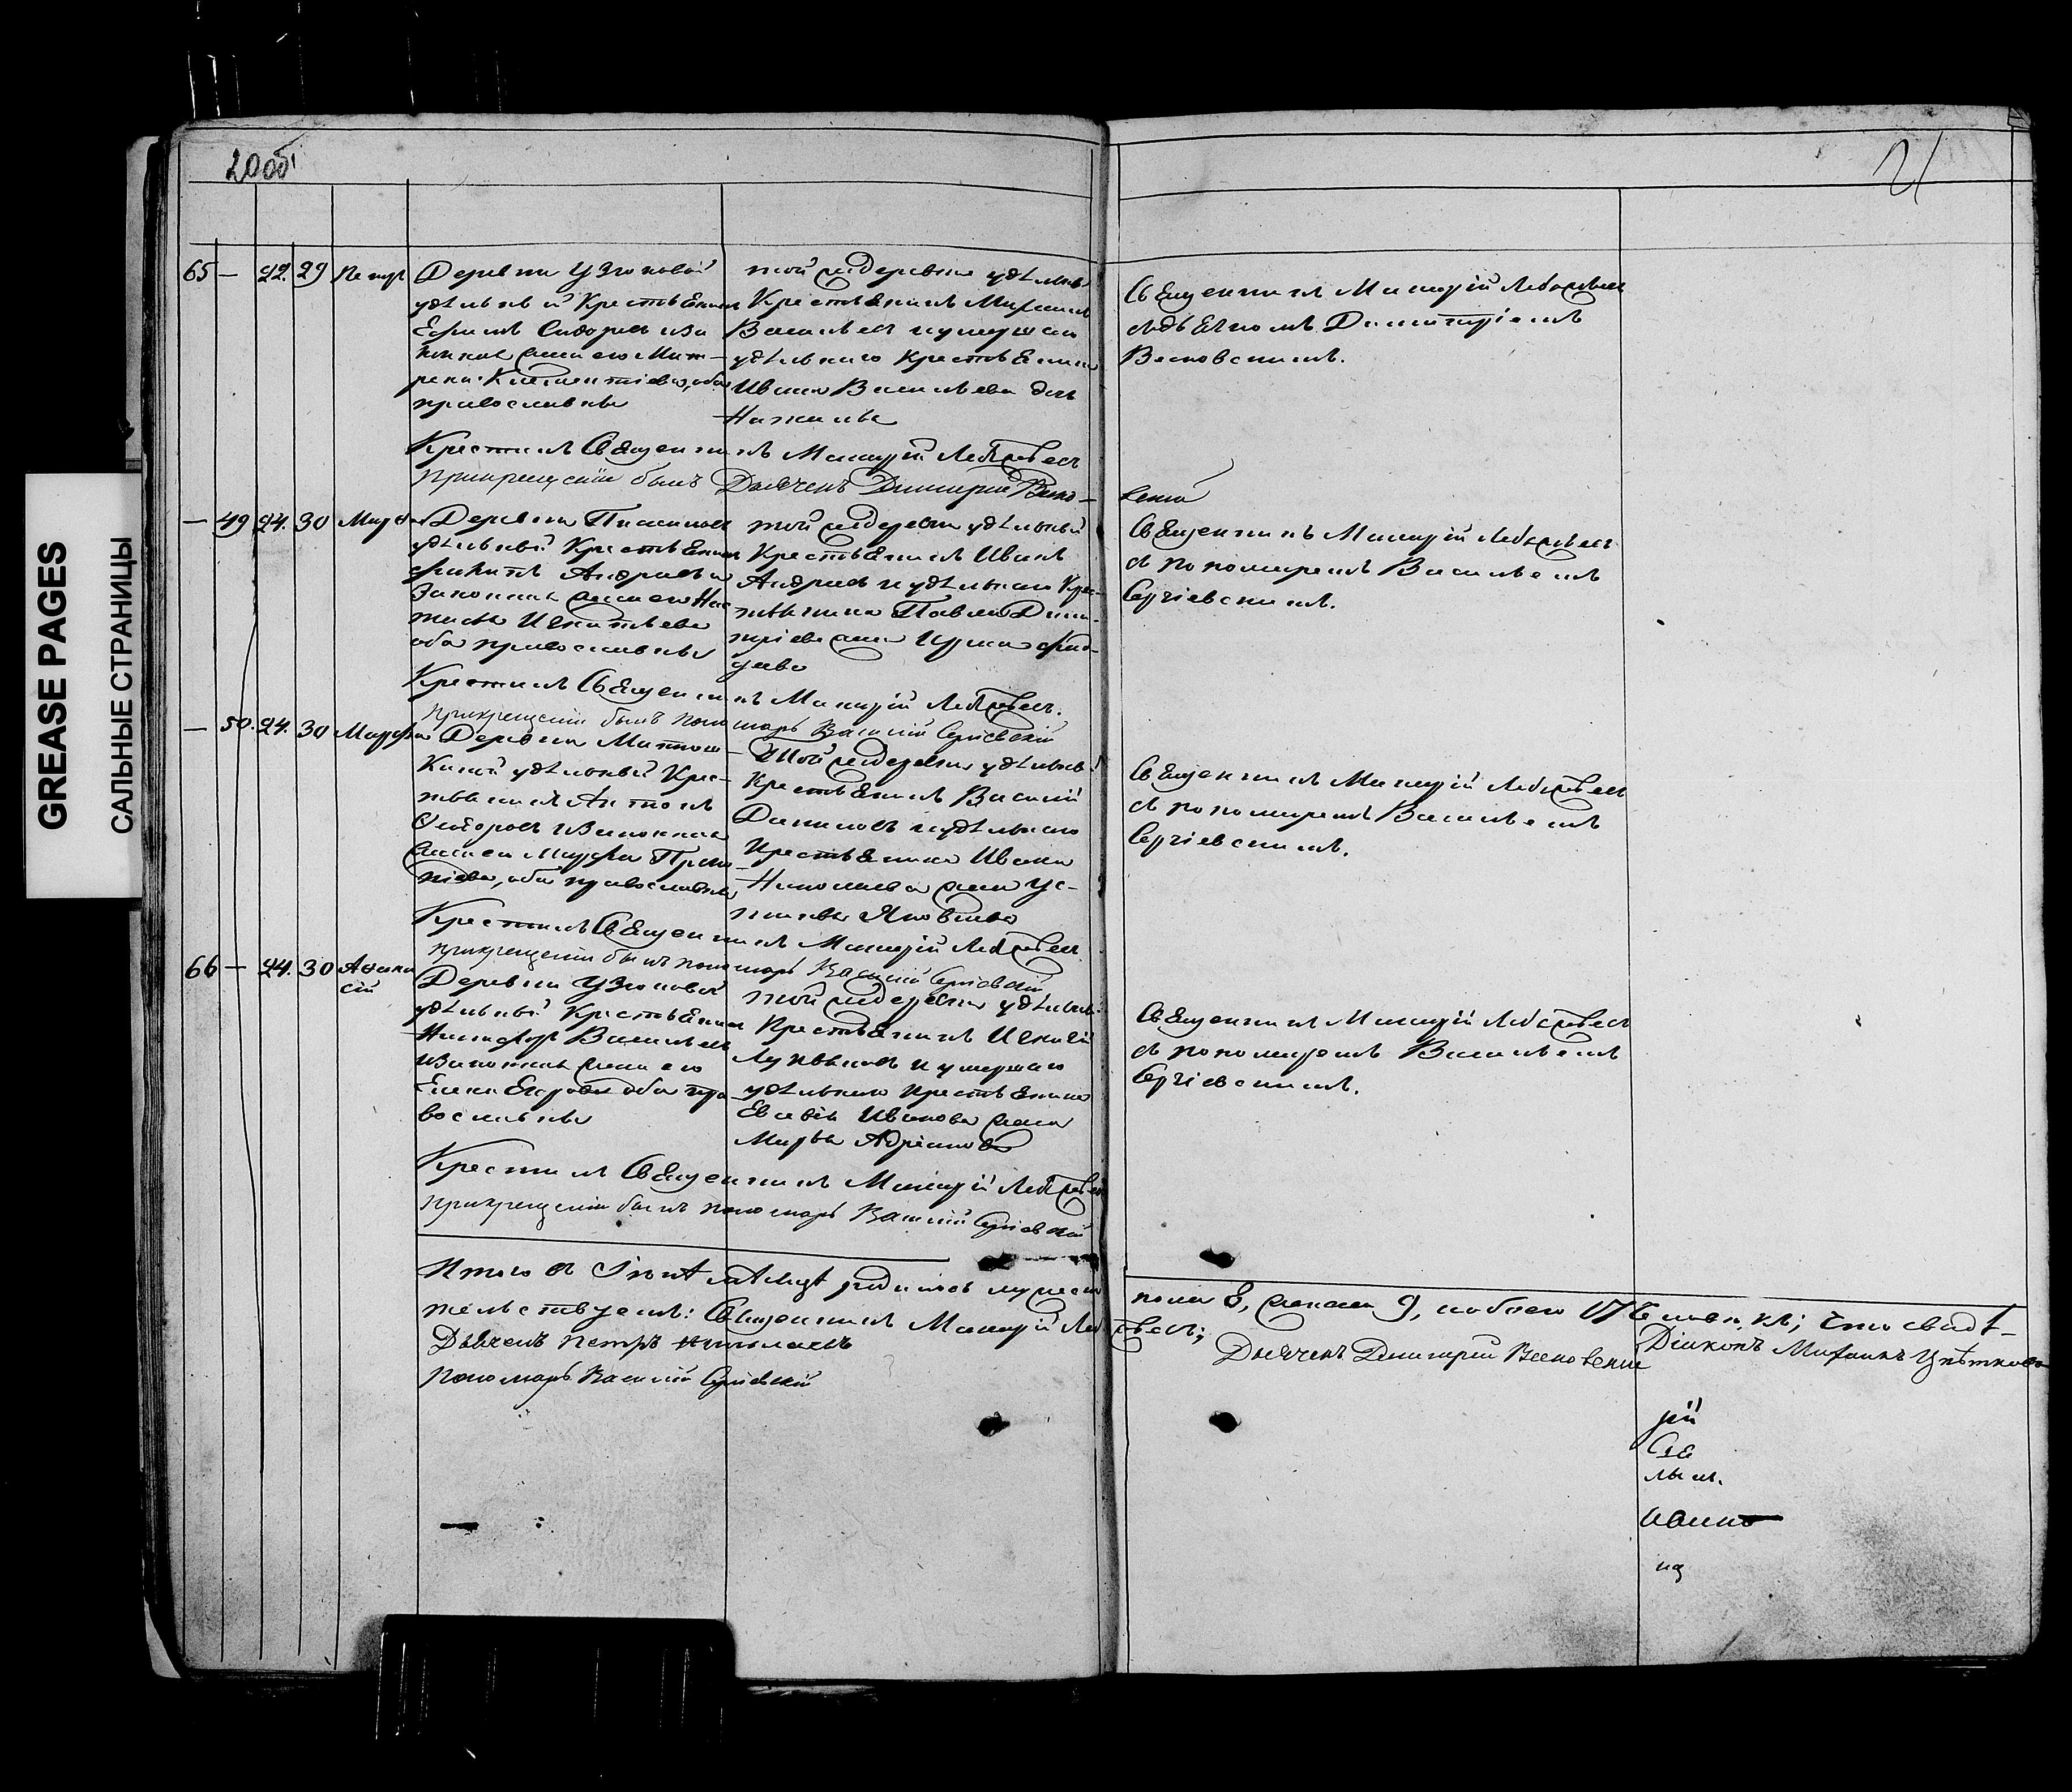 20об
21
GREASE PAGES
САЛЬНЫЕ СТРАНИЦЫ
65 — 22. 29 Петръ
Деревни Узюковой
удѣльный Крестьянинъ
Ефимъ Сидоровъ и за
конная жена его Мат-
рена Климентіева, оба
православны
той же деревни удѣльный
Крестьянинъ Михаилъ
Васильевъ и умершаго
удѣльнаго Крестьянина
Ивана Васильева дочь
Наталья
Священникъ Макарій Лебедевъ
съ дьячкомъ Димитріемъ
Весновскимъ.
Крестилъ Священникъ Макарій Лебедевъ
При крещеніи былъ Дьячекъ Димитрій Весно-
вскій
— 49 24. 30 Марѳа
Деревни
удѣльный Крестьянинъ
Никита Андреевъ и
законная жена его Нас
тасья Игнатьева
оба православны
той же деревни удѣльный
Крестьянинъ Иванъ
Андреевъ и удѣльнаго Крес-
тьянина Павла Дими-
тріева жена Ирина
Священникъ Макарій Лебедевъ
съ пономаремъ Васильемъ
Сергіевскимъ.
Крестилъ Священникъ Макарій Лебедевъ.
При крещеніи былъ пономарь Василій Сергіевскій
— 50. 24. 30 Марѳа
Деревни
удѣльный Крес-
тьянинъ Антонъ
Ѳедоровъ и законная
жена его Марѳа Проко
піева, оба православны
Той же деревни удѣльный
Крестьянинъ Василій
Даниловъ и удѣльнаго
Крестьянина Ивана
Николаева жена Ус-
тинья Яковлева
Священникъ Макарій Лебедевъ
съ пономаремъ Васильемъ
Сергіевскимъ.
Крестилъ Священникъ Макарій Лебедевъ
При крещеніи былъ пономарь Василій Сергіевскій
66 — 24. 30 Аѳана
сій
Деревни Узюковой
удѣльный Крестьянинъ
Никифоръ Васильевъ
и законная жена его
Елена Егорова оба пра
вославны
той же деревни удѣльный
Крестьянинъ Игнатій
Лукьяновъ и умершаго
удѣльнаго Крестьянина
Евсевія Иванова жена
Марѳа Адріанова
Священникъ Макарій Лебедевъ
съ пономаремъ Васильемъ
Сергіевскимъ.
Крестилъ Священникъ Макарій Лебедевъ
При крещеніи былъ пономарь Василій Сергіевскій
Итого въ Іюнѣ мѣсяцѣ родилось мужеска
пола 8, женска 9, обоего 17 человѣкъ; что свидѣ-
тельствуемъ: Священникъ Макарій Лебедевъ;
Діаконъ Михаилъ Цвѣтковъ
Дьячекъ Петръ Николаевъ
Дьячекъ Димитрій Весновскій
Пономарь Василій Сергіевскій
рій